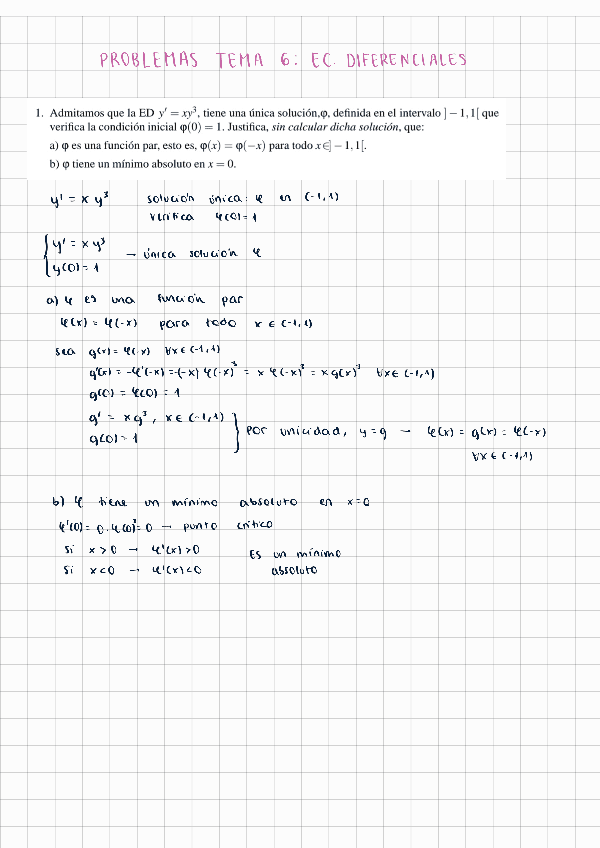 PROBLEMAS TEMA 6: EC. DIFERENCIALES
1. Admitamos que la ED y' = xy³, tiene una única solución,φ, definida en el intervalo ]−1,1[ que
verifica la condición inicial φ(0) = 1. Justifica, sin calcular dicha solución, que:
a) φ es una función par, esto es, φ(x) = φ(−x) para todo x∈]−1,1[.
b) φ tiene un mínimo absoluto en x = 0.
y' = x y³ solución única: φ en (-1,1)
verifica φ(0)=1
y' = x y³
y(0) = 1 → única solución φ
a) φ es una función par
φ(x) = φ(-x) para todo x ∈ (-1,1)
sea g(x) = φ(-x) ∀x ∈ (-1,1)
g'(x) = -φ'(-x) = -(-x) φ(-x)³ = x φ(-x)³ = x g(x)³ ∀x ∈ (-1,1)
g(0) = φ(0) = 1
g' = x g³, x ∈ (-1,1)
g(0) = 1 } por unicidad, y = g → φ(x) = g(x) = φ(-x)
∀x ∈ (-1,1)
b) φ tiene un mínimo absoluto en x=0
φ'(0) = 0·φ(0)³ = 0 → punto crítico
Si x > 0 → φ'(x) > 0 Es un mínimo
Si x < 0 → φ'(x) < 0 absoluto